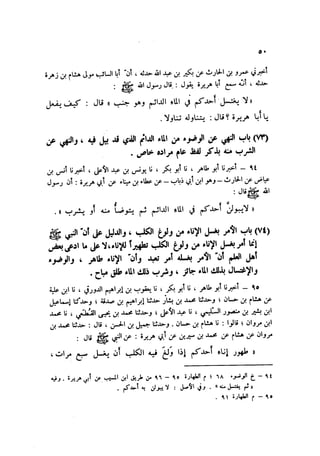 ٥٠
أخبرني عمرو بن الحارث عن بكير بن عبد الله حدثه ، أن أبا السائب مولى هشام بن زهرة
حدثه ، أنه سمع أبا هريرة يقول : قال رسول الله ﷺ :
« لا يغتسل أحدكم في الماء الدائم وهو جنب » قال : كيف يفعل
يا أبا هريرة ؟ قال : يتناوله تناولا .
(٧٣) باب النهي عن الوضوء من الماء الدائم الذي قد بيل فيه ، والنهي عن
الشرب منه بذكر لفظ عام مراده خاص .
٩٤ – أخبرنا أبو طاهر ، نا أبو بكر ، نا يونس بن عبد الأعلى ، أخبرنا أنس بن
عياض عن الحارث – وهو ابن أبي ذباب – عن عطاء بن ميناء عن أبي هريرة : أن رسول
الله ﷺ قال :
« لا يبولنّ أحدكم في الماء الدائم ثم يتوضأ منه أو يشرب » .
(٧٤) باب الأمر بغسل الإناء من ولوغ الكلب ، والدليل على أن النبي ﷺ
إنما أمر بغسل الإناء من ولوغ الكلب تطهيراً للإناء، لا على ما ادعى بعض
أهل العلم أن الأمر بغسله أمر تعبد وأن الإناء طاهر ، والوضوء
والاغتسال بذلك الماء جائز ، وشرب ذلك الماء طلق مباح .
٩٥ – أخبرنا أبو طاهر ، نا أبو بكر ، نا يعقوب بن إبراهيم الدورقي ، نا ابن علية
عن هشام بن حسان ؛ وحدثنا محمد بن بشار حدثنا إبراهيم بن صدقة ؛ وحدثنا إسماعيل
ابن بشير بن منصور السليمي ، نا عبد الأعلى ، وحدثنا محمد بن يحيى القُطَعي ، نا محمد
ابن مروان ؛ قالوا : نا هشام بن حسان . وحدثنا جميل بن الحسن ، قال : حدثنا محمد بن
مروان عن هشام عن محمد بن سيرين عن أبي هريرة : عن النبي ﷺ قال :
« طهور إناء أحدكم إذا ولغ فيه الكلب أن يغسل سبع مرات ،
٩٤ – خ الوضوء ٦٨ ؛ م الطهارة ٩٥ – ٩٦ من طريق ابن المسيب عن أبي هريرة . وفيه
« ثم يغتسل منه » . وفي الأصل : لا يبولن به أحدكم .
٩٥ – م الطهارة ٩١ .